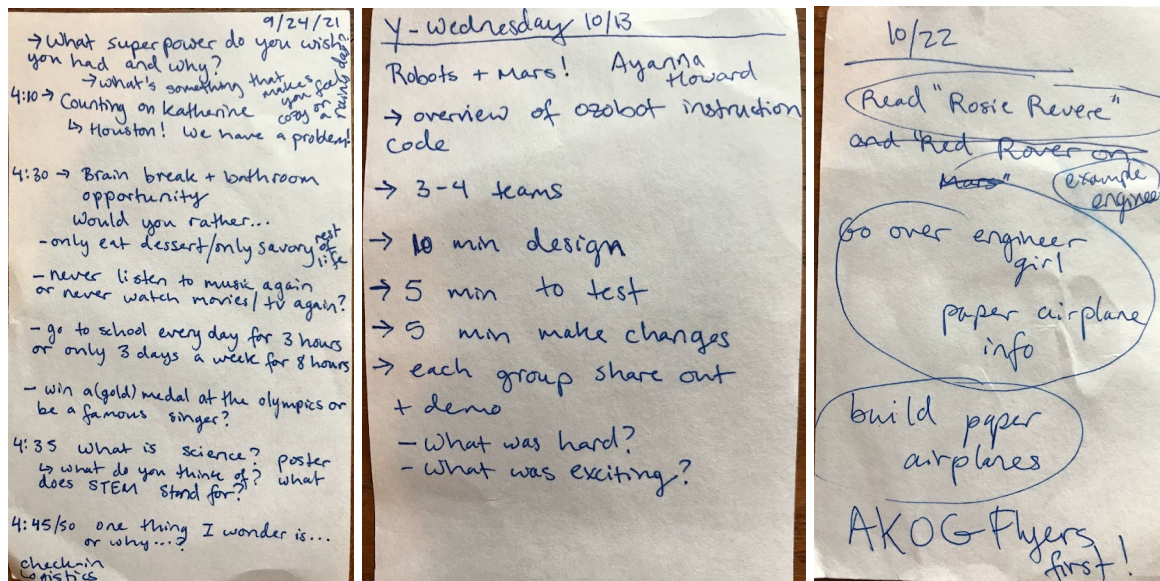 9/24/21
→ What superpower do you wish
you had and why?
→ what's something that makes
you feel
cozy on a
rainy day?
4:10 → Counting on Katherine
↳ Houston! We have a problem!
4:30 → Brain break + bathroom
opportunity
Would you rather...
- only eat dessert/only savory rest
of
life
- never listen to music again
or never watch movies/tv again?
- go to school every day for 3 hours
or only 3 days a week for 8 hours
- win a(gold) medal at the olympics or
be a famous singer?
4:35 What is science? poster
↳ what do you think of? what
does STEM stand for?
4:45/50 one thing I wonder is...
or why...?
check-in
Logistics
Y - Wednesday 10/13
Robots + Mars! Ayanna
Howard
→ overview of ozobot instruction
code
→ 3-4 teams
→ 10 min design
→ 5 min to test
→ 5 min make changes
→ each group share out
+ demo
- What was hard?
- What was exciting?
10/22
Read "Rosie Revere"
and "Red Rover on
Mars"
example
engineer
Go over engineer
girl
paper airplane
info
build paper
airplanes
AKOG Flyers
first!